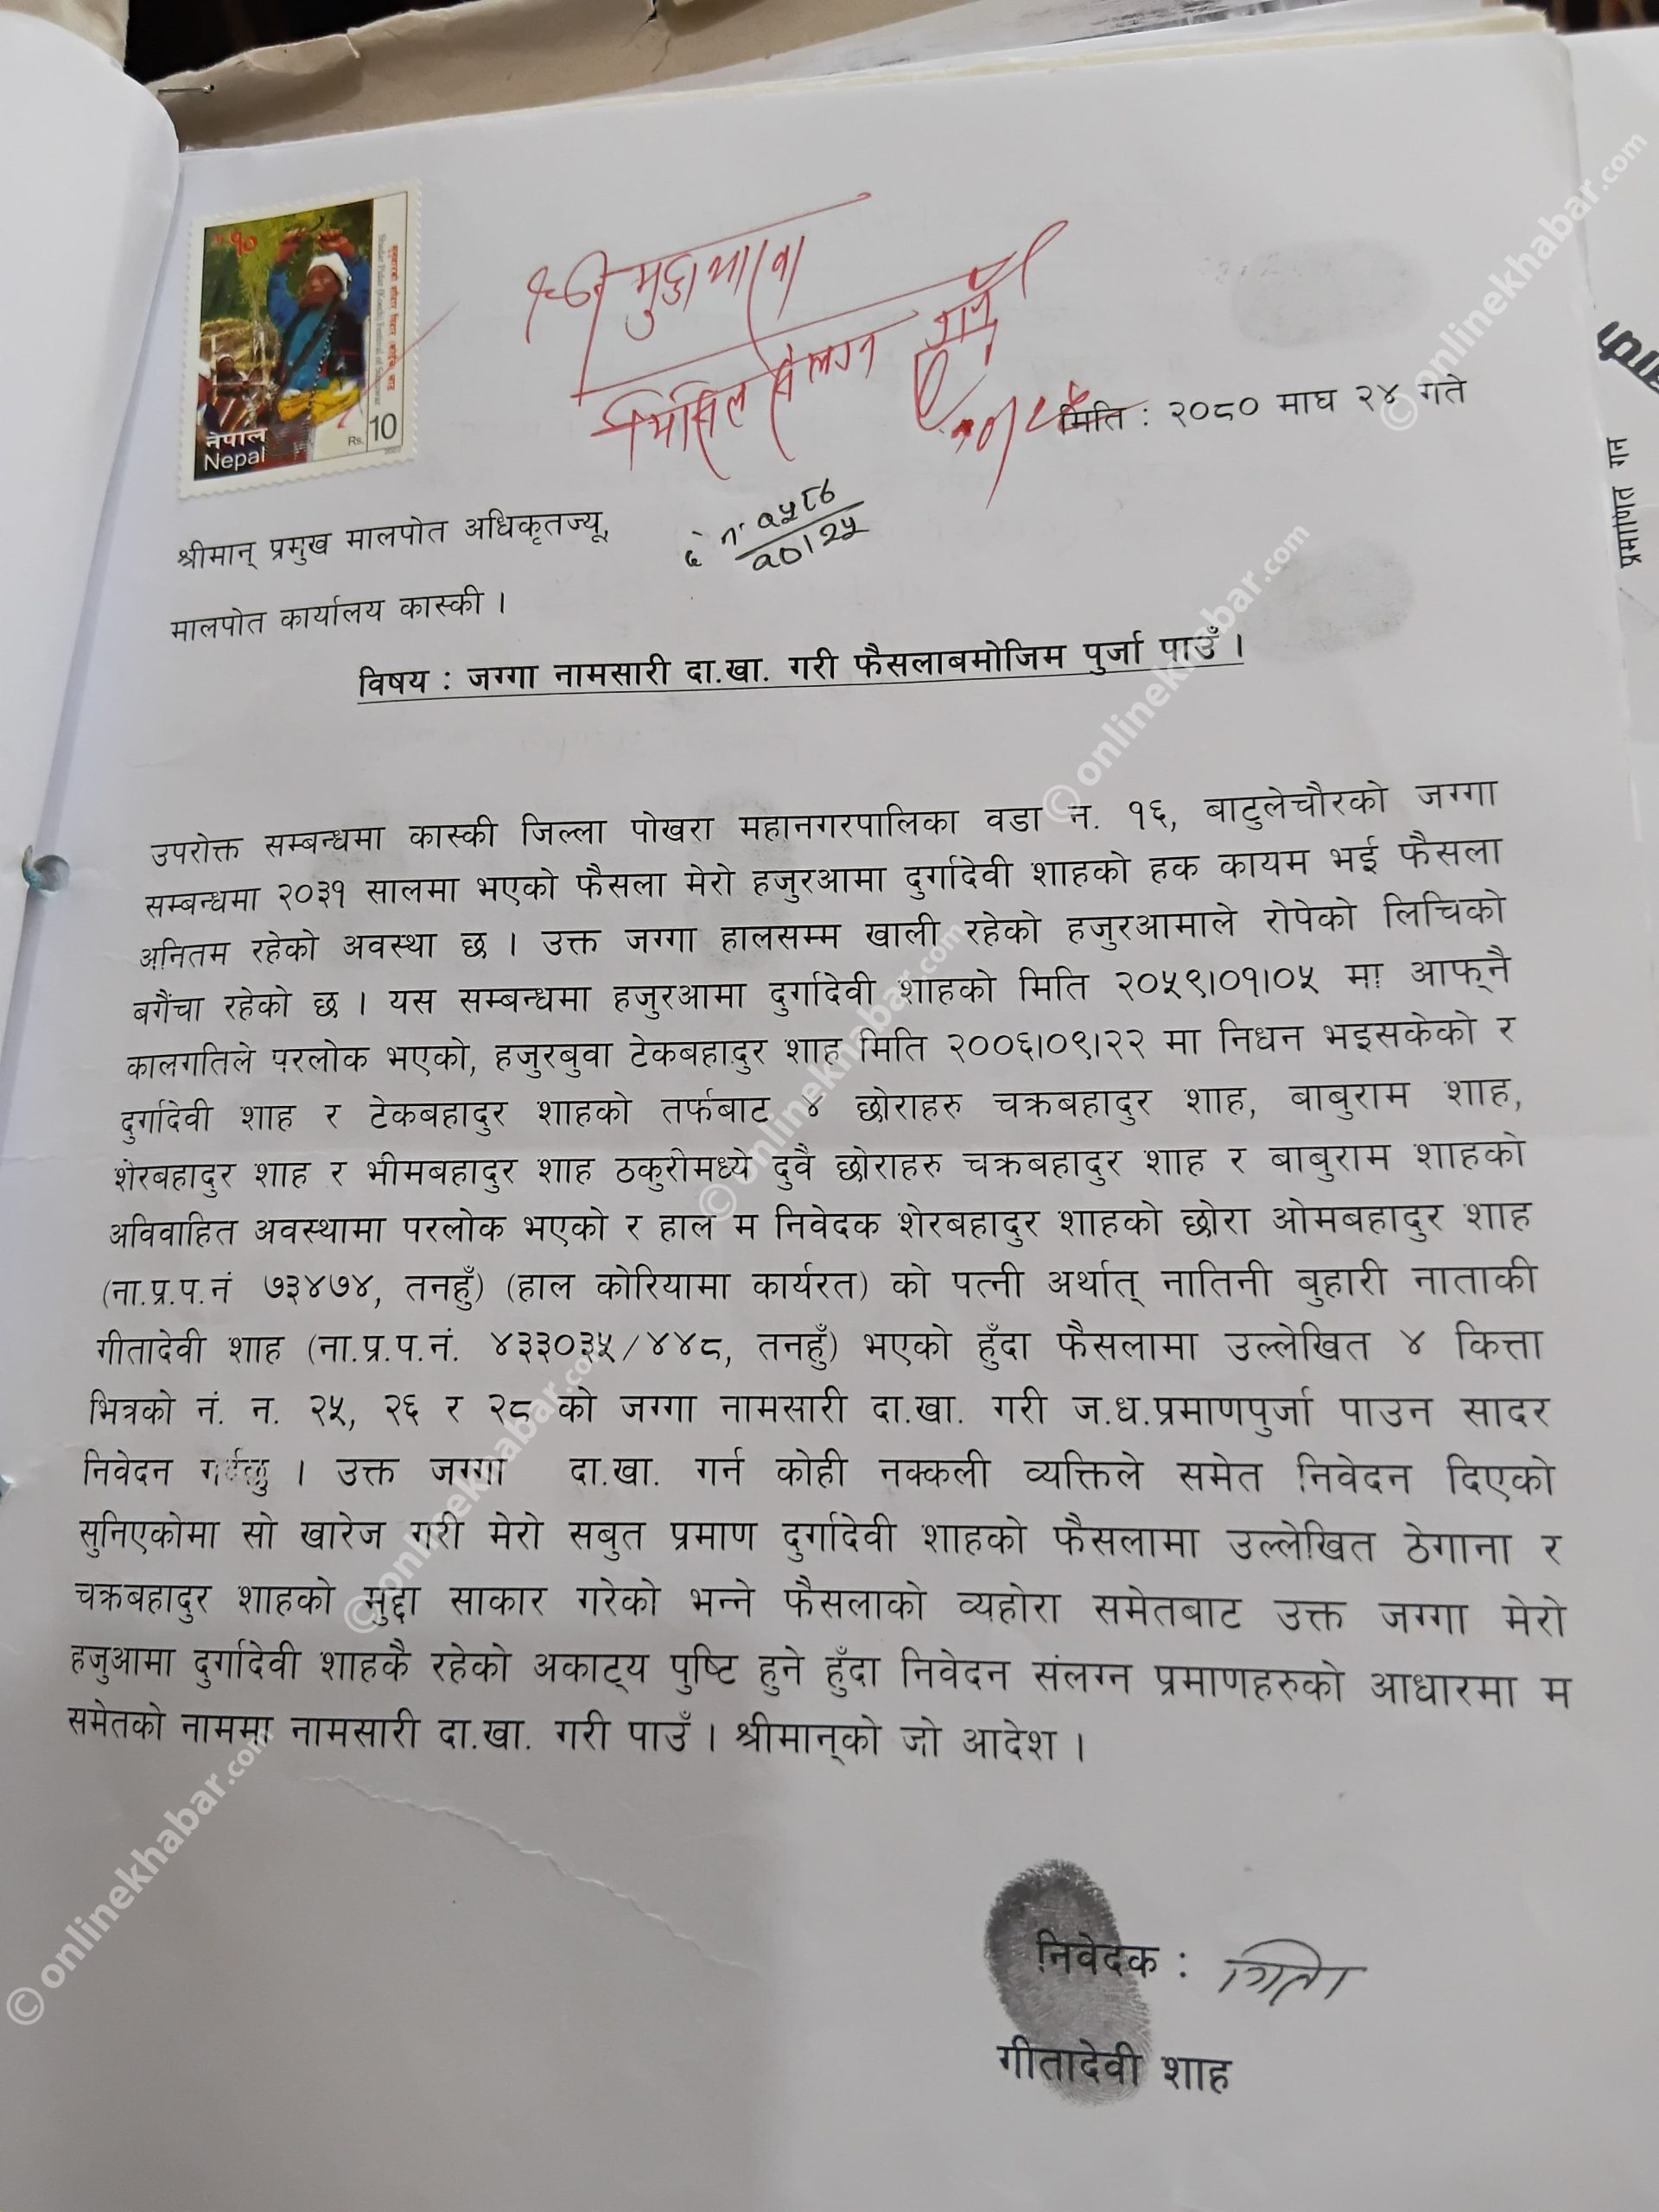 नेपाल
Nepal
Rs. 10
मिति : २०८० माघ २४ गते
श्रीमान् प्रमुख मालपोत अधिकृतज्यू,
मालपोत कार्यालय कास्की ।
विषय : जग्गा नामसारी दा.खा. गरी फैसलाबमोजिम पुर्जा पाउँ ।
उपरोक्त सम्बन्धमा कास्की जिल्ला पोखरा महानगरपालिका वडा न. १६, बाटुलेचौरको जग्गा
सम्बन्धमा २०३१ सालमा भएको फैसला मेरो हजुरआमा दुर्गादेवी शाहको हक कायम भई फैसला
अनितम रहेको अवस्था छ । उक्त जग्गा हालसम्म खाली रहेको हजुरआमाले रोपेको लिचिको
बगैंचा रहेको छ । यस सम्बन्धमा हजुरआमा दुर्गादेवी शाहको मिति २०५९।०१।०५ मा आफ्नै
कालगतिले परलोक भएको, हजुरबुवा टेकबहादुर शाह मिति २००६।०९।२२ मा निधन भइसकेको र
दुर्गादेवी शाह र टेकबहादुर शाहको तर्फबाट ४ छोराहरु चक्रबहादुर शाह, बाबुराम शाह,
शेरबहादुर शाह र भीमबहादुर शाह ठकुरीमध्ये दुवै छोराहरु चक्रबहादुर शाह र बाबुराम शाहको
अविवाहित अवस्थामा परलोक भएको र हाल म निवेदक शेरबहादुर शाहको छोरा ओमबहादुर शाह
(ना.प्र.प.नं ७३४७४, तनहुँ) (हाल कोरियामा कार्यरत) को पत्नी अर्थात् नातिनी बुहारी नाताकी
गीतादेवी शाह (ना.प्र.प.नं. ४३३०३५/४४८, तनहुँ) भएको हुँदा फैसलामा उल्लेखित ४ कित्ता
भित्रको नं. न. २५, २६ र २८ को जग्गा नामसारी दा.खा. गरी ज.ध.प्रमाणपुर्जा पाउन सादर
निवेदन गर्दछु । उक्त जग्गा दा.खा. गर्न कोही नक्कली व्यक्तिले समेत निवेदन दिएको
सुनिएकोमा सो खारेज गरी मेरो सबुत प्रमाण दुर्गादेवी शाहको फैसलामा उल्लेखित ठेगाना र
चक्रबहादुर शाहको मुद्दा साकार गरेको भन्ने फैसलाको व्यहोरा समेतबाट उक्त जग्गा मेरो
हजुआमा दुर्गादेवी शाहकै रहेको अकाट्य पुष्टि हुने हुँदा निवेदन संलग्न प्रमाणहरुको आधारमा म
समेतको नाममा नामसारी दा.खा. गरी पाउँ । श्रीमान्को जो आदेश ।
निवेदक :
गीतादेवी शाह
प्रमाणित गर्ने
© onlinekhabar.com
© onlinekhabar.com
© onlinekhabar.com
© onlinekhabar.com
© onlinekhabar.com